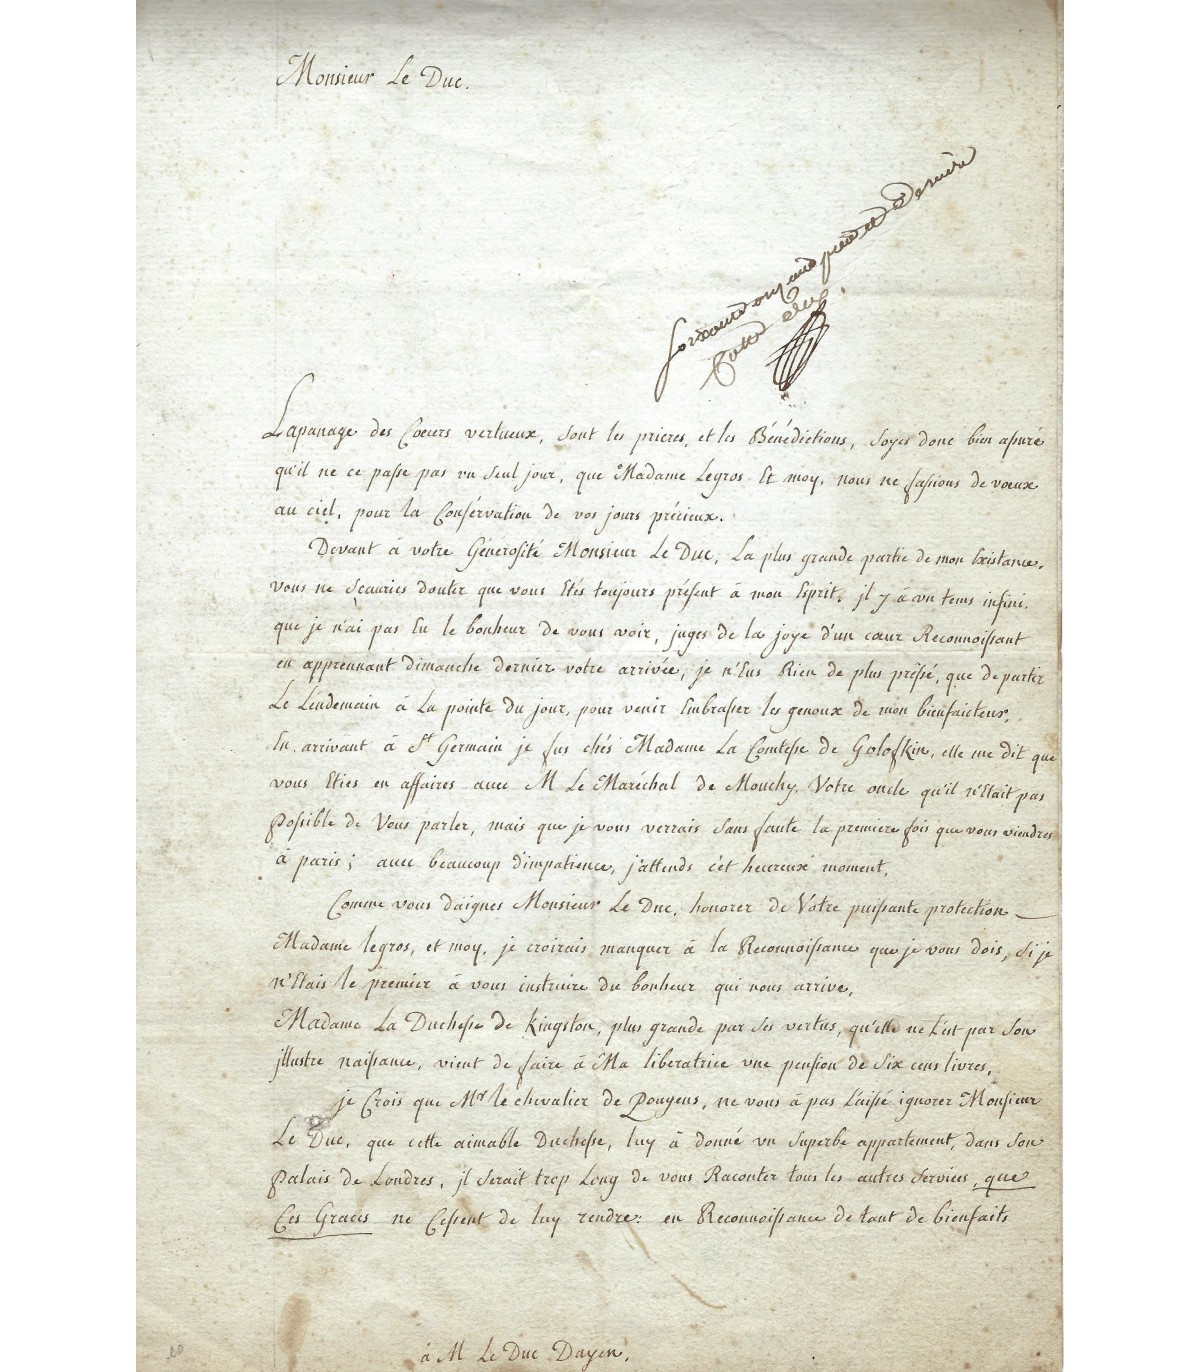 Monsieur Le Duc.
Lapanage des Coeurs vertueux, sont les prieres, et les Bénédictions, soyes donc bien assuré
qu'il ne ce passe pas un seul jour, que Madame Legros Et moy, nous ne fassions de voeux
au ciel, pour la Consérvation de vos jours précieux.
Devant à votre Générosité Monsieur Le Duc, La plus grande partie de mon Existance,
vous ne Scauries douter que vous Etés toujours présent à mon Esprit. jl y à un tems infini,
que je n'ai pas Eu le bonheur de vous voir, juges de la joye d'un cœur Reconnoissant
en apprennant dimanche dernier votre arrivée, je n'Eus Rien de plus préssé, que de partir
Le Lendemain à La pointe du jour, pour venir Embrasser les genoux de mon bienfaicteur,
En arrivant à St Germain je fus chés Madame La Comtesse de Golofkin, elle me dit que
vous Eties en affaires avec M Le Maréchal de Mouchy, Votre oncle qu'il n'Etait pas
possible de Vous parler, mais que je vous verrais sans faute la premiere fois que vous viendres
à paris; avec beaucoup d'impatience, j'attends c'ét heureux moment,
Comme vous daignes Monsieur Le Duc, honorer de Votre puissante protection
Madame legros, et moy, je croirais manquer à la Reconnoissance que je vous dois, si je
n'Etais le premier à vous instruire du bonheur qui nous arrive,
Madame La Duchesse de Kingston, plus grande par ses vertus, qu'elle ne L'est par son
jllustre naissance, vient de faire à Ma liberatrice une pension de Six cens livres,
je Crois que Mr le chevalier de Pougens, ne vous à pas Laissé ignorer Monsieur
Le Duc, que cette aimable Duchesse, luy à donné un superbe appartement, dans son
palais de Londres, jl serait trop Long de vous Raconter tous les autres services, que
Ces Graces ne Cessent de luy rendre: en Reconnoissance de tant de bienfaits
à M Le Duc Dayen,